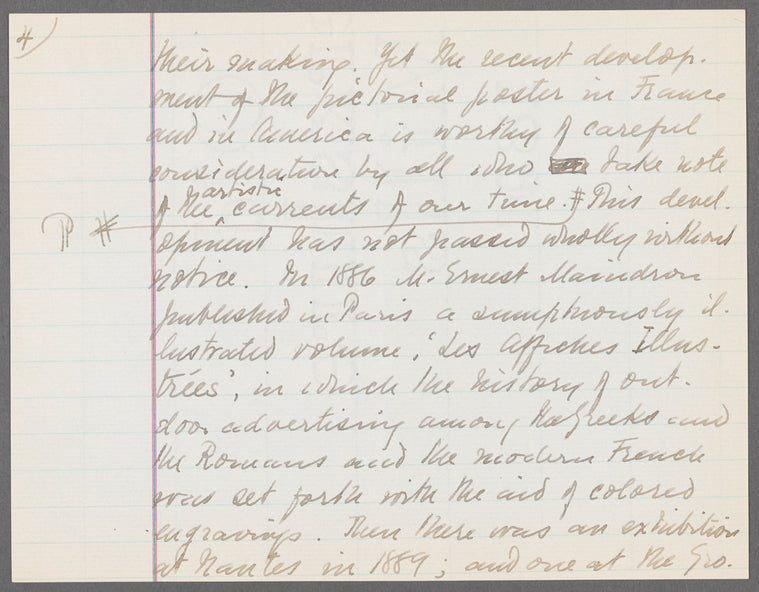 4
their making. Yet the recent develop-
ment of the pictorial poster in France
and in America is worthy of careful
consideration by all who take note
artistic
of the ‸ currents of our time. # This devel-
¶ #
opment has not passed wholly without
notice. In 1886 M. Ernest Maindron
published in Paris a sumptuously il-
lustrated volume, 'Les Affiches Illus-
trées', in which the history of out-
door advertising among the Greeks and
the Romans and the modern French
was set forth with the aid of colored
engravings. Then there was an exhibition
at Nantes in 1889; and one at the Gro-